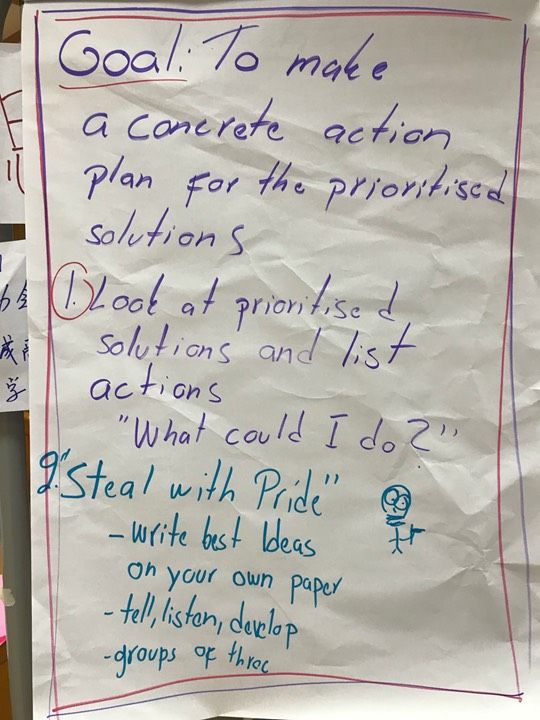 Goal: To make
a concrete action
plan for the prioritised
solutions
1. Look at prioritised
solutions and list
actions
"What could I do?"
2. "Steal with Pride"
- write best Ideas
on your own paper
- tell, listen, develop
- groups of three
成
学